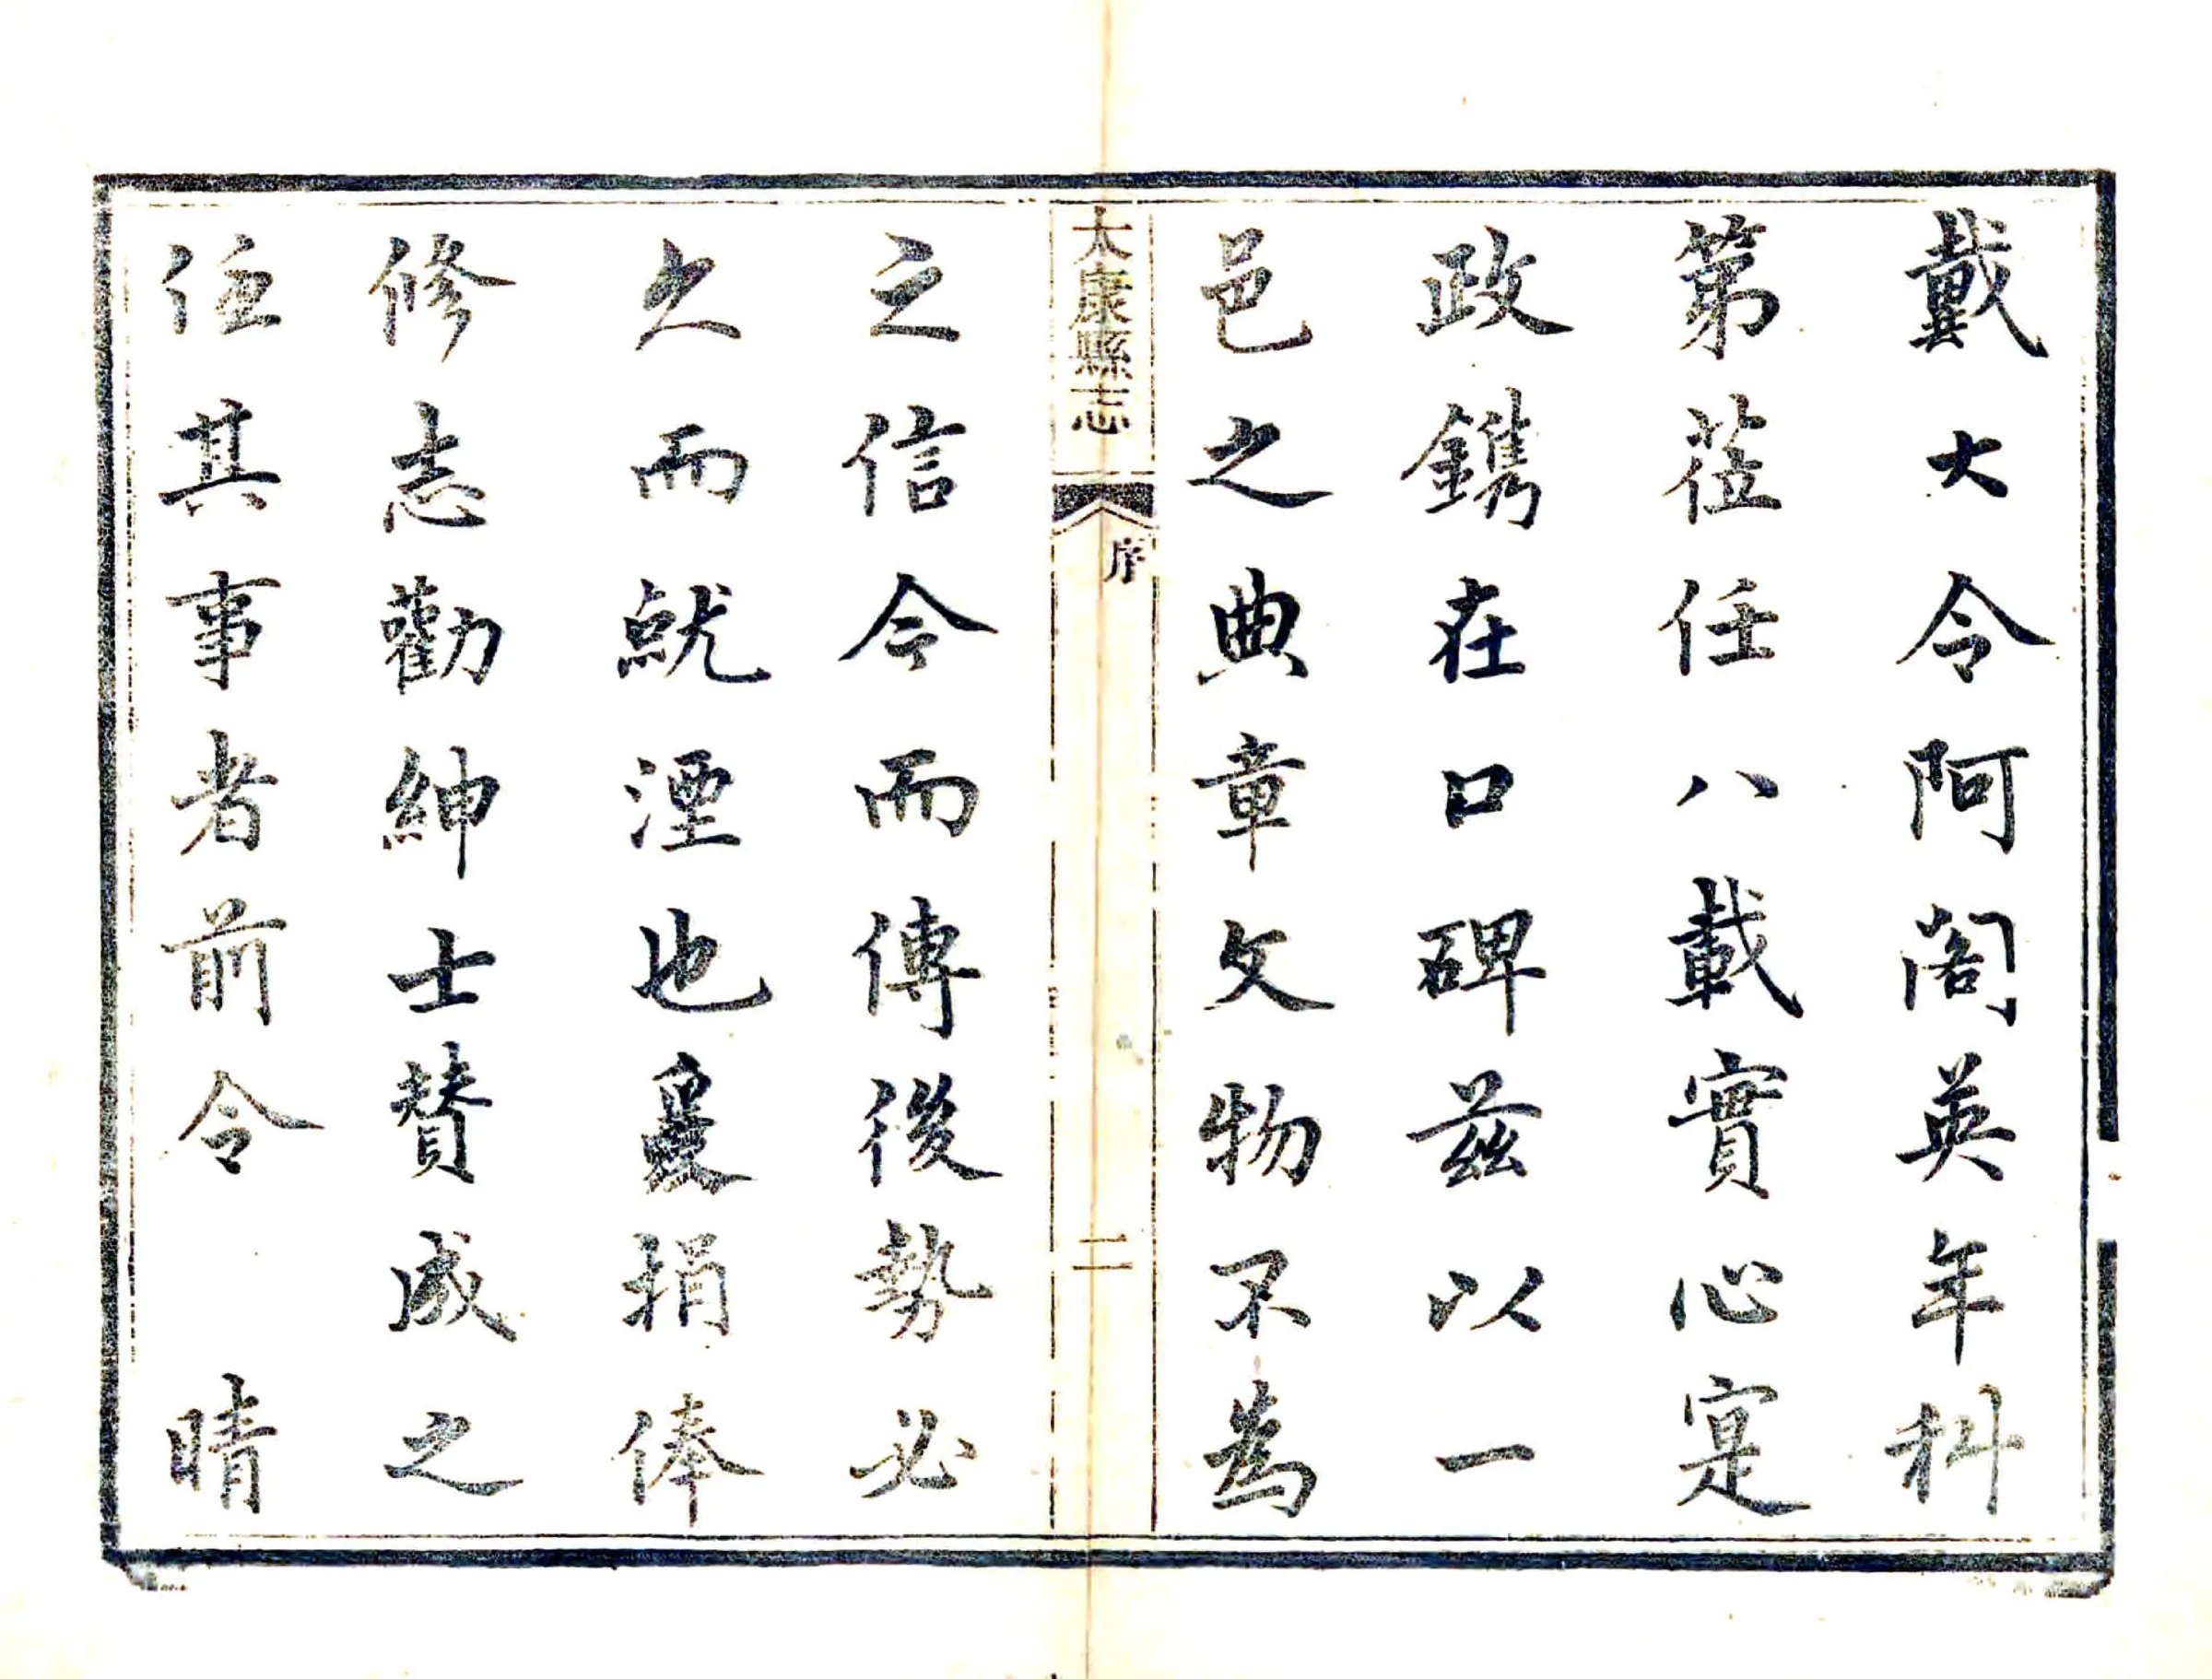 戴大令阿閣英年科
第莅任八載實心寔
政鐫在口碑茲以一
邑之典章文物不為
太康縣志
序
二
之信今而傳後勢必
久而就湮也爰捐俸
修志勸紳士贊成之
任其事者前令 晴